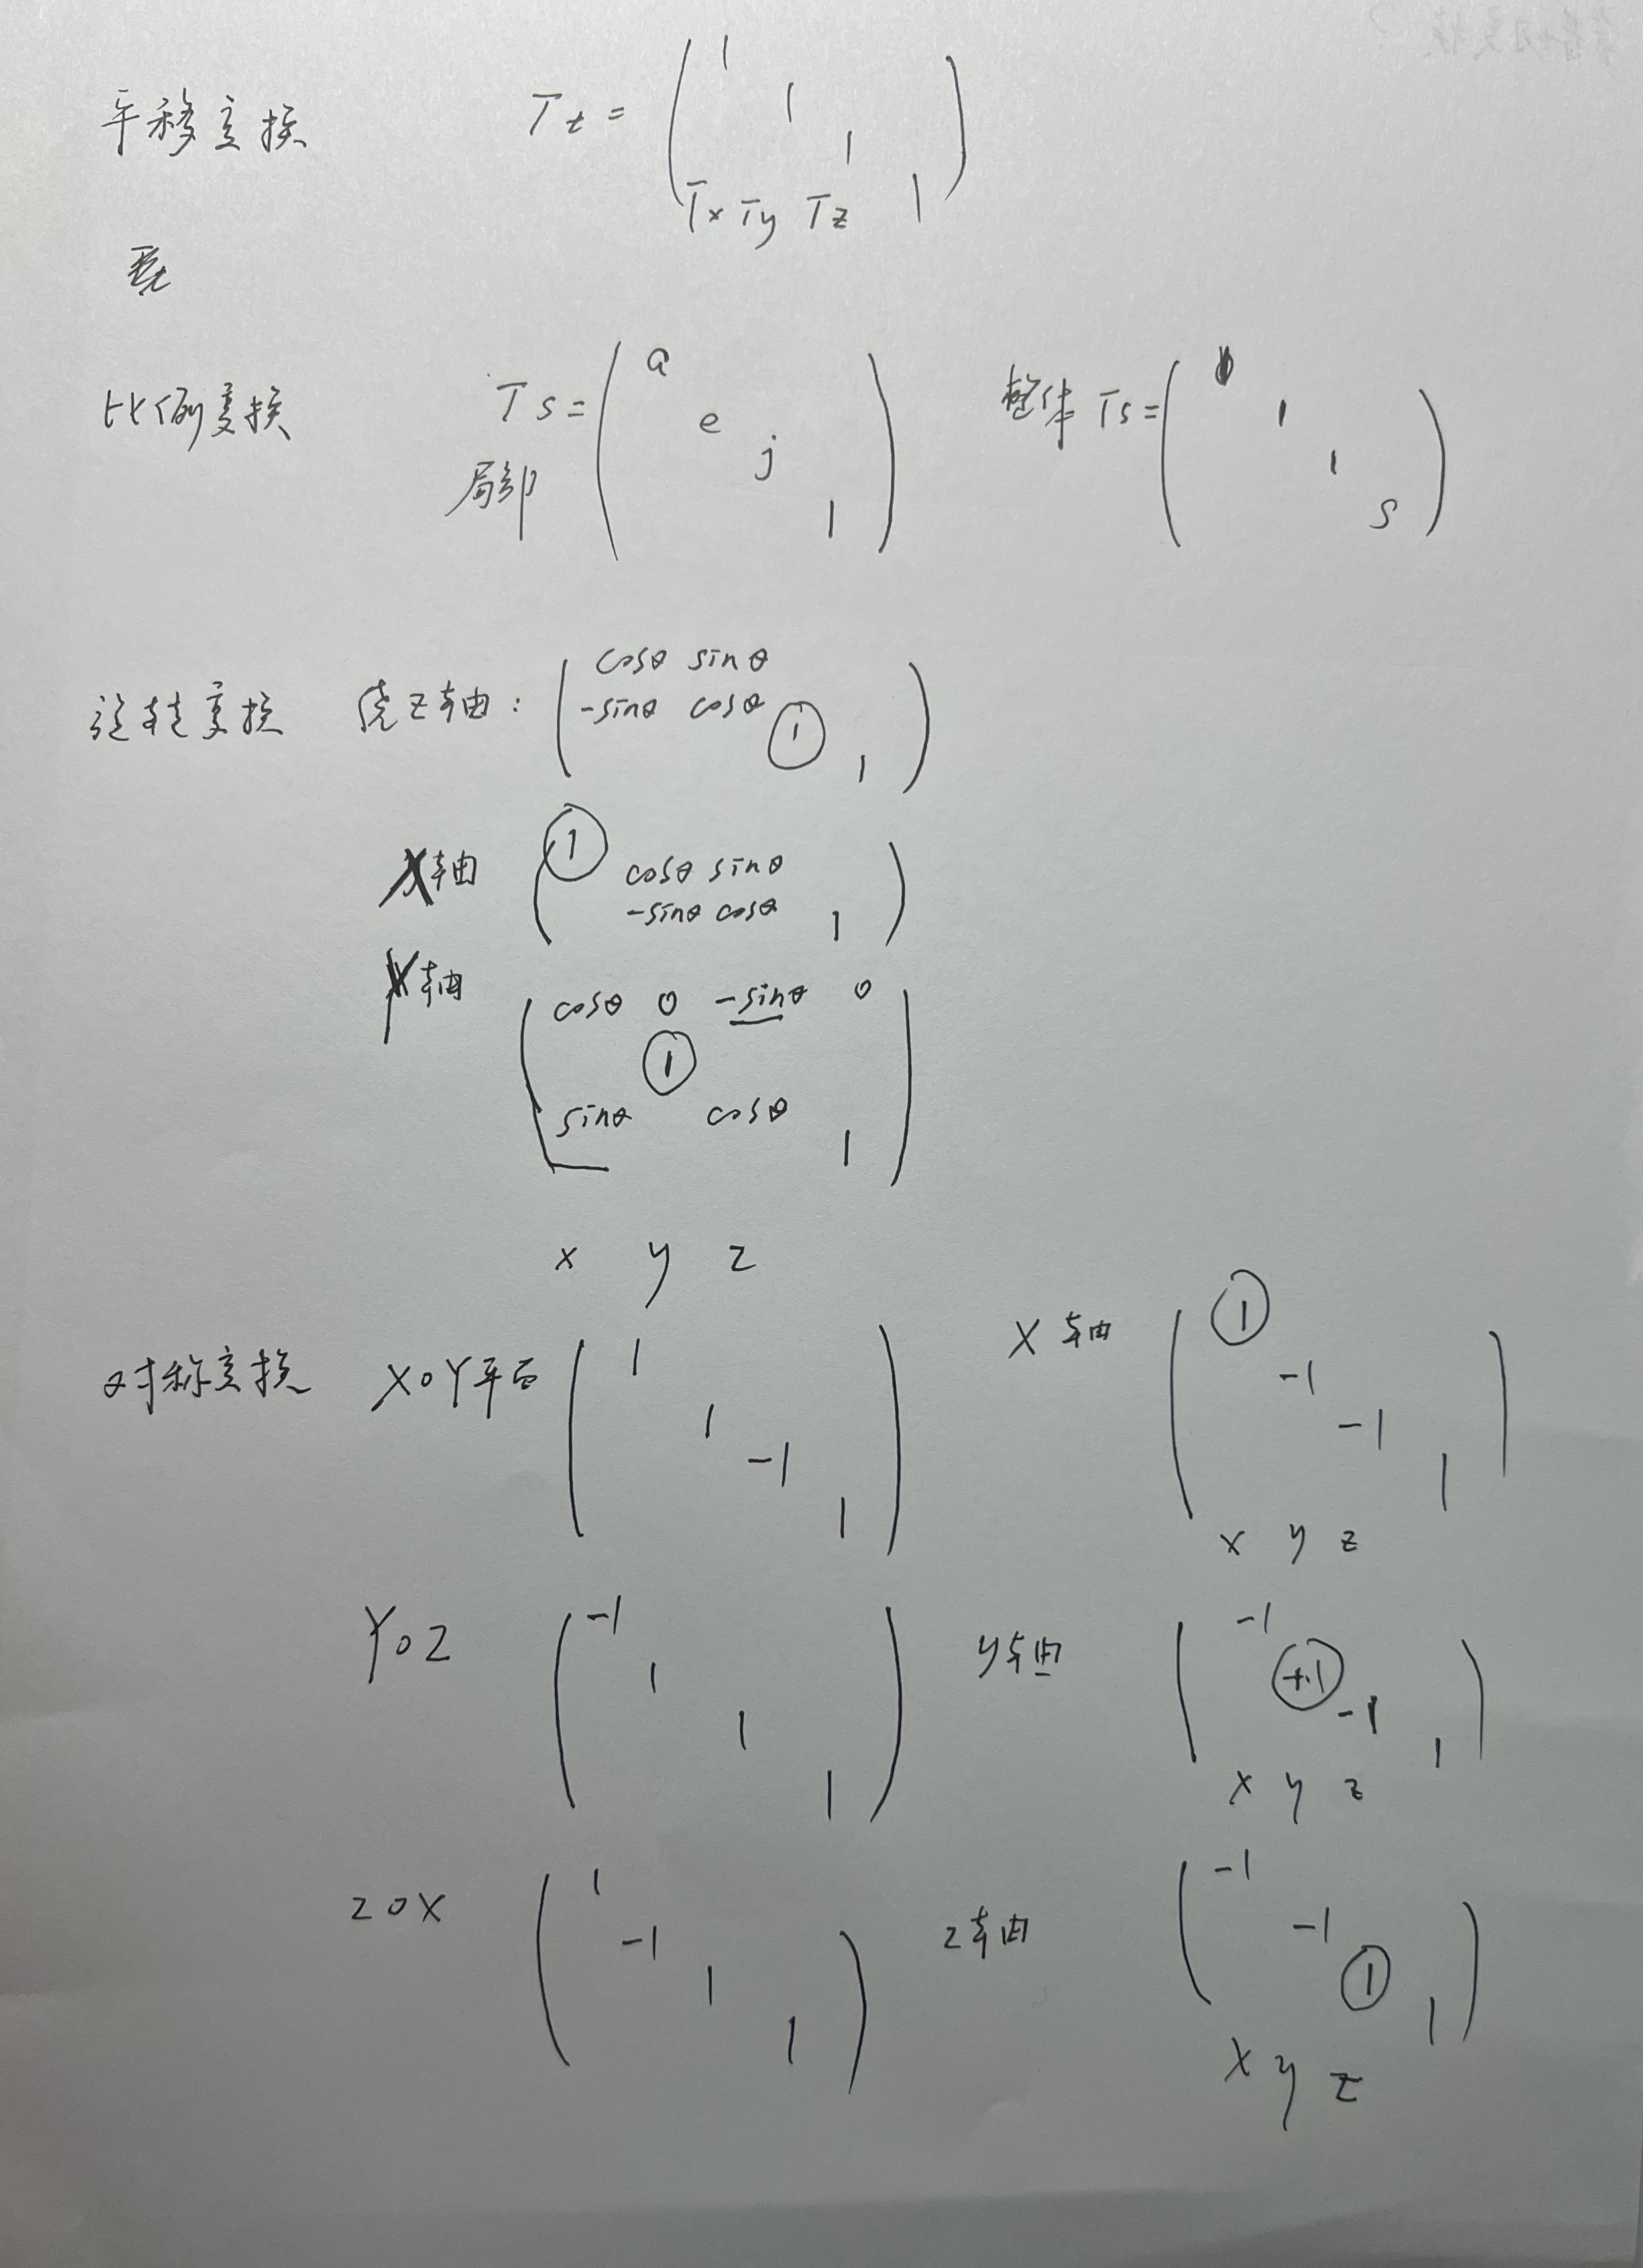 平移变换 Tt =
1
1
1
Tx Ty Tz 1
比例变换 Ts = 局部
a
e
j
1
整体 Ts =
1
1
1
s
旋转变换 绕Z轴:
cosθ sinθ
-sinθ cosθ
1
1
X轴
1
cosθ sinθ
-sinθ cosθ 1
Y轴
cosθ 0 -sinθ 0
1
sinθ cosθ
1
x y z
对称变换 XOY平面
1
1
-1
1
X轴
1
-1
-1
1
x y z
YOZ
-1
1
1
1
y轴
-1
+1
-1
1
x y z
ZOX
1
-1
1
1
Z轴
-1
-1
1
1
x y z